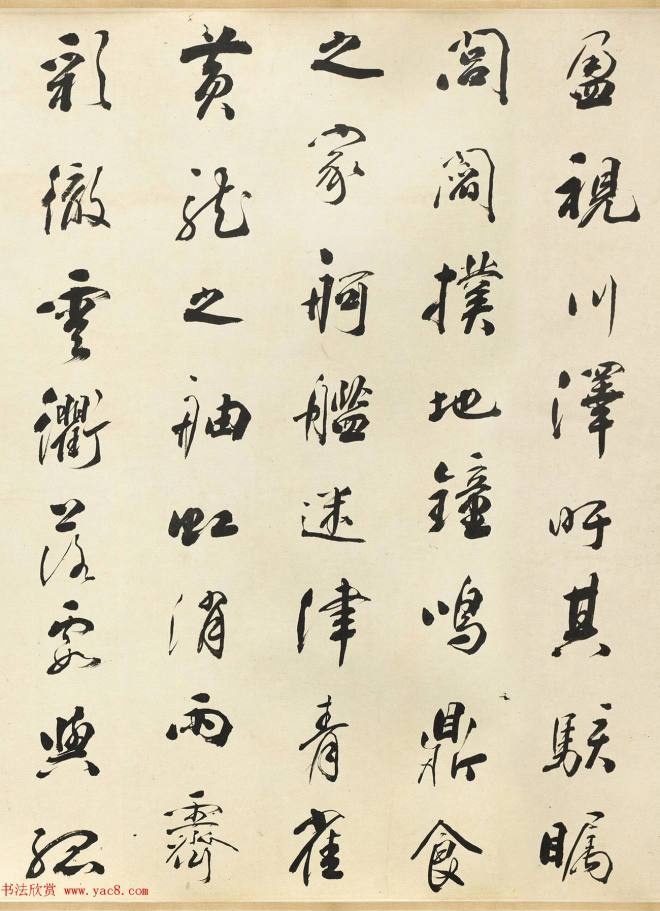 盈視川澤盱其駭矚
閭閻撲地鐘鳴鼎食
之家舸艦迷津青雀
黃龍之舳虹消雨霽
彩徹雲衢落霞與孤
书法欣赏 www.yac8.com